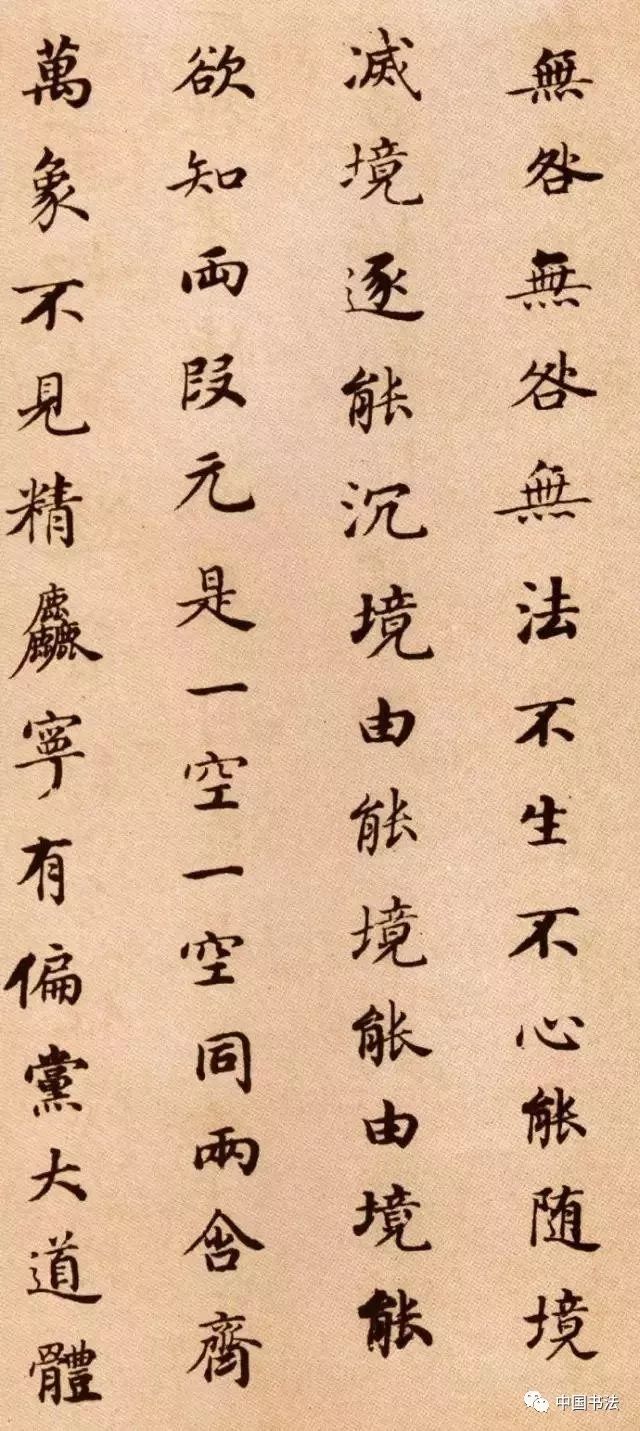 無咎無咎無法不生不心能随境
滅境逐能沉境由能境能由境能
欲知兩段元是一空一空同兩含齊
萬象不見精麤寧有偏黨大道體
中国书法